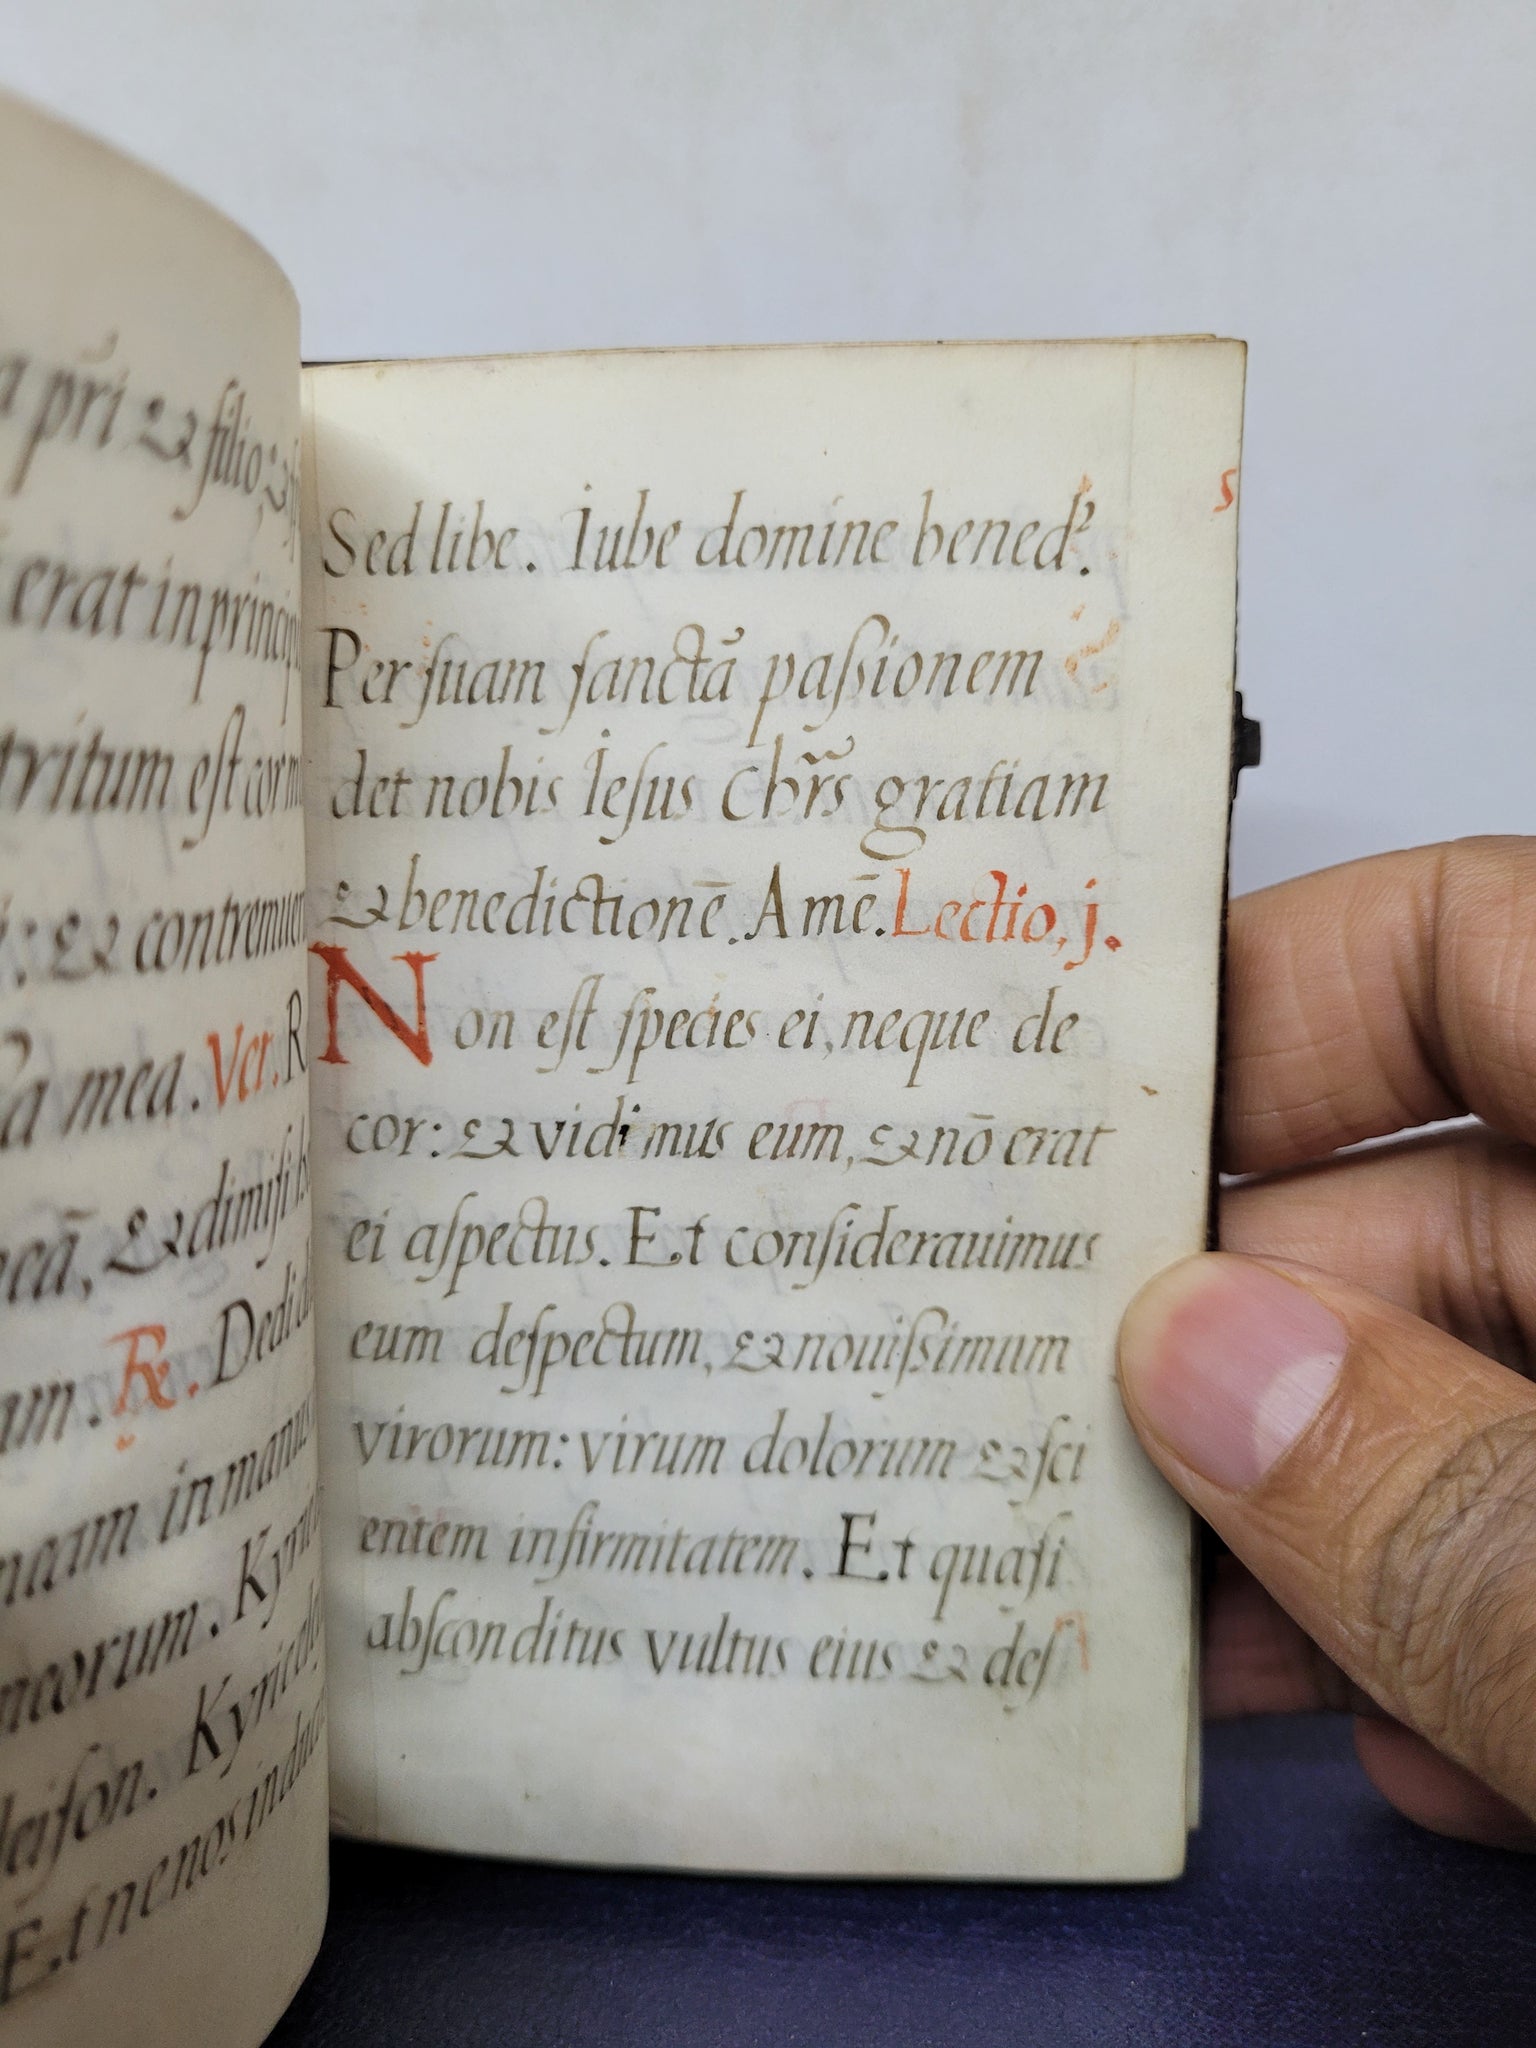 a pr̃i & filio:
erat in princip
tritum est cor m
& contremuer
a mea. Ver. R
eā, & dimisi
am. ℟. Dedi
meam in manus
meorum. Kyri
leison. Kyri
Et ne nos induc
5
Sed libe. Iube domine bened².
Per ſuam ſanctā paſsionem
det nobis Ieſus Chr̃s gratiam
& benedictionē. Amē. Lectio, j.
Non eſt ſpecies ei, neque de
cor: & vidimus eum, & nō erat
ei aſpectus. Et conſiderauimus
eum deſpectum, & nouiſsimum
virorum: virum dolorum & ſci
entem infirmitatem. Et quaſi
abſconditus vultus eius & deſ